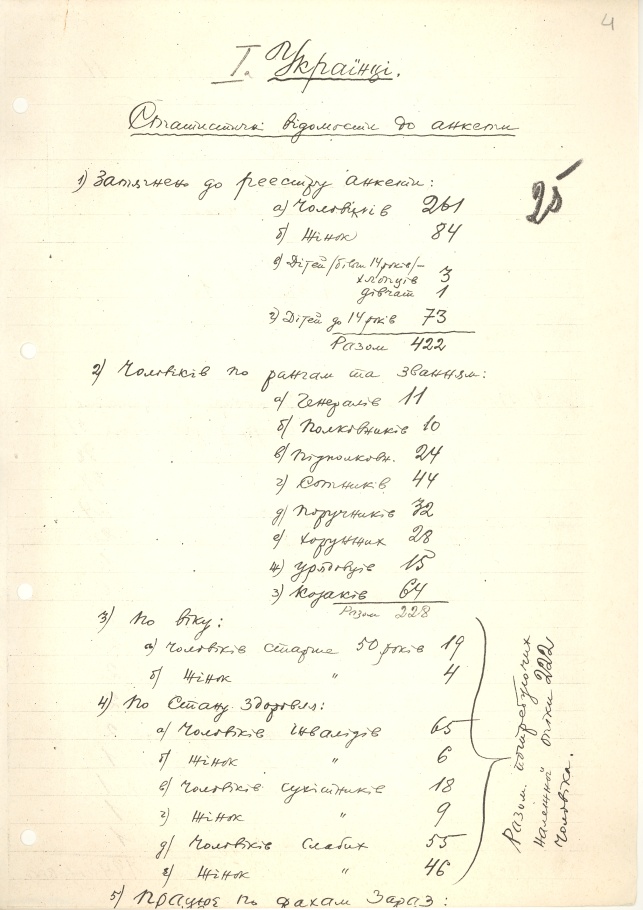 4
I. Українці.
Статистичні відомости до анкети
25
1) Затягнено до реестру анкети:
а) Чоловіків 261
б) Жінок 84
в) Дітей /більш 14 років/ –
хлопців 3
дівчат 1
г) Дітей до 14 років 73
Разом 422
2) Чоловіків по рангам та званням:
а) Генералів 11
б) Полковників 10
в) Підполковн. 24
г) Сотників 44
д) Поручників 32
е) Хорунжих 28
ж) Урядовців 15
з) Козаків 64
Разом 228
3) По віку:
а) Чоловіків старше 50 років 19
б) Жінок " 4
4) По Стану Здоровля:
а) Чоловіків Інвалідів 65
б) Жінок " 6
в) Чоловіків Сухітників 18
г) Жінок " 9
д) Чоловіків Слабих 55
е) Жінок " 46
Разом потребуючих
належної опіки 222
чоловіка.
5) Працює по фахам Зараз: